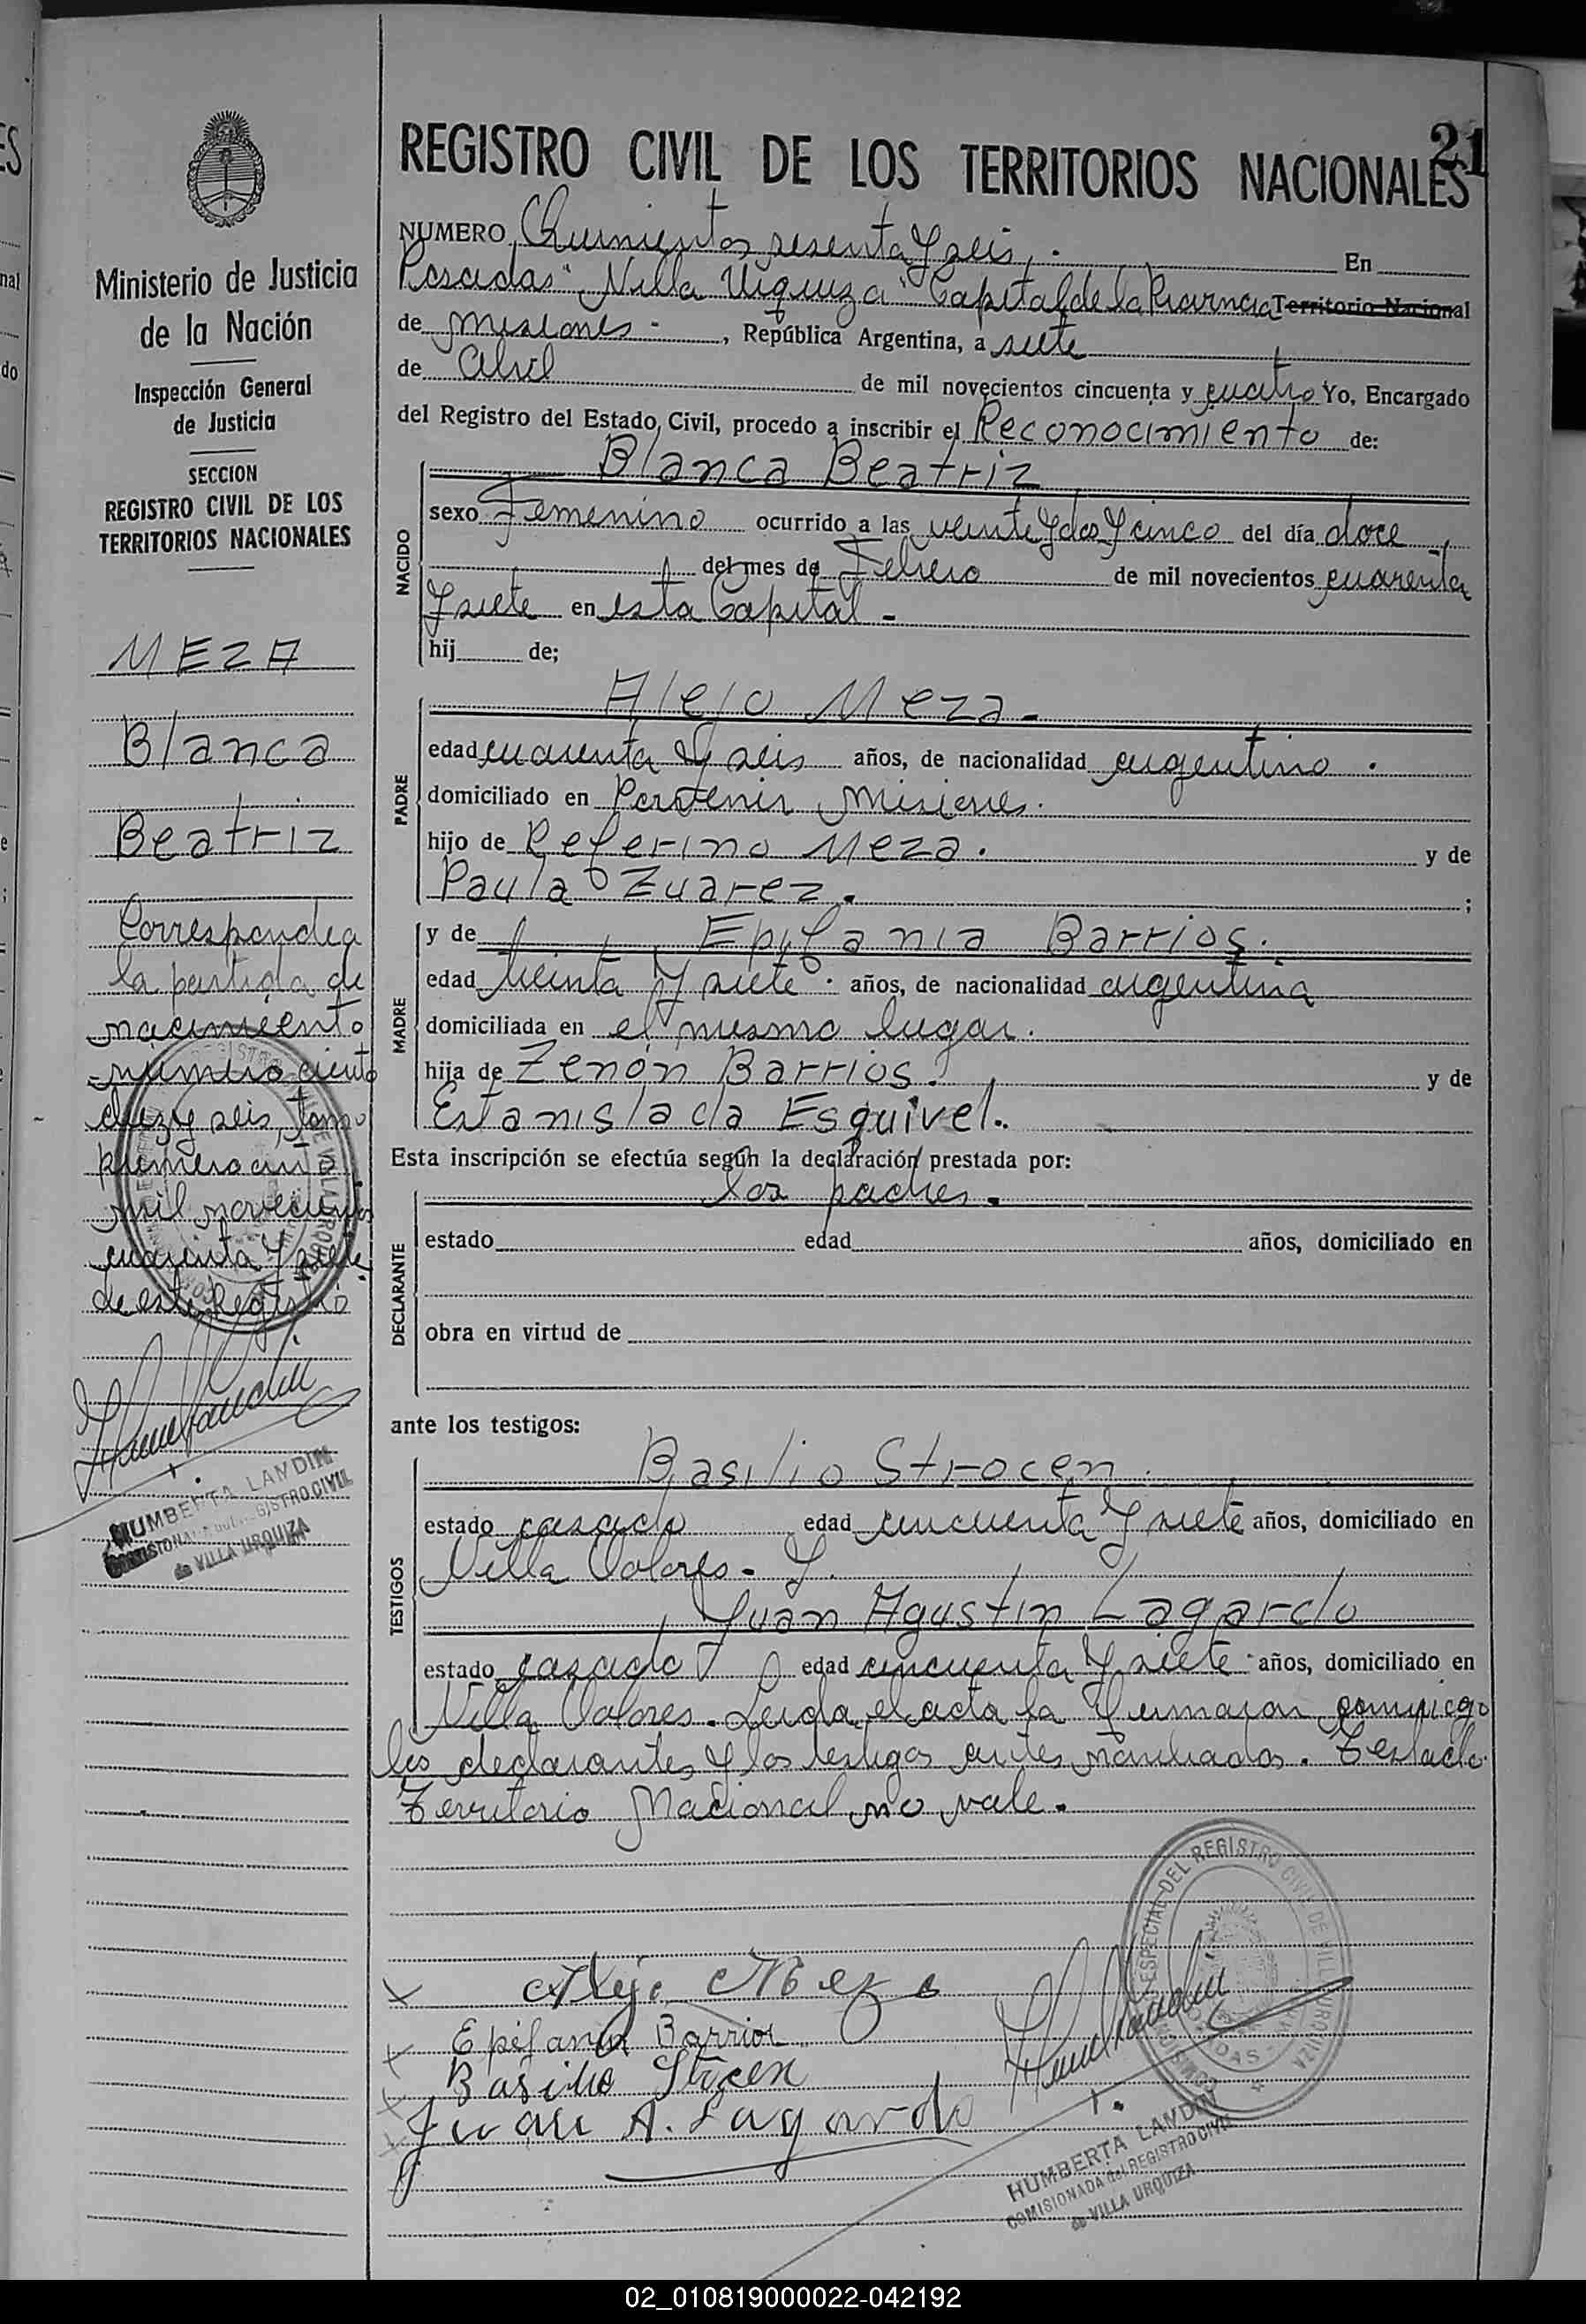 21
REGISTRO CIVIL DE LOS TERRITORIOS NACIONALES
Ministerio de Justicia
de la Nación
Inspección General
de Justicia
SECCION
REGISTRO CIVIL DE LOS
TERRITORIOS NACIONALES
MEZA
Blanca
Beatriz
Corresponde a
la partida de
nacimiento
número ciento
diez y seis, tomo
primero año
mil novecientos
cuarenta y siete
de este Registro
HUMBERTA LANDIN
COMISIONADA del REGISTRO CIVIL
de VILLA URQUIZA
NUMERO Quinientos sesenta y seis. En
Posadas "Villa Urquiza" Capital de la Provincia Territorio Nacional
de Misiones -, República Argentina, a siete
de Abril de mil novecientos cincuenta y cuatro Yo, Encargado
del Registro del Estado Civil, procedo a inscribir el Reconocimiento de:
NACIDO
Blanca Beatriz
sexo Femenino ocurrido a las veinte y dos y cinco del día doce
del mes de Febrero de mil novecientos cuarenta
y siete en esta Capital -
hij de;
PADRE
Alejo Meza -
edad cuarenta y seis años, de nacionalidad argentino.
domiciliado en Porvenir Misiones.
hijo de Referino Meza. y de
Paula Zuarez. ;
MADRE
y de Epifania Barrios.
edad treinta y siete. años, de nacionalidad argentina
domiciliada en el mismo lugar.
hija de Zenón Barrios. y de
Estanislada Esquivel.
Esta inscripción se efectúa según la declaración prestada por:
DECLARANTE
los padres.
estado edad años, domiciliado en
obra en virtud de
ante los testigos:
TESTIGOS
Basilio Strocen.
estado casado edad cincuenta y siete años, domiciliado en
Villa Dolores - y.
Juan Agustín Lagardo
estado casado edad cincuenta y siete años, domiciliado en
Villa Dolores. Leida el acta la firmaron conmigo
los declarantes y los testigos antes nombrados. Testado
Territorio Nacional no vale.
ESPECIAL DEL REGISTRO CIVIL DE VILLA URQUIZA
POSADAS
x Alejo Meza
x Epifania Barrios
x Basilio Strocen
x Juan A. Lagardo
HUMBERTA LANDIN
COMISIONADA del REGISTRO CIVIL
de VILLA URQUIZA
02_010819000022-042192